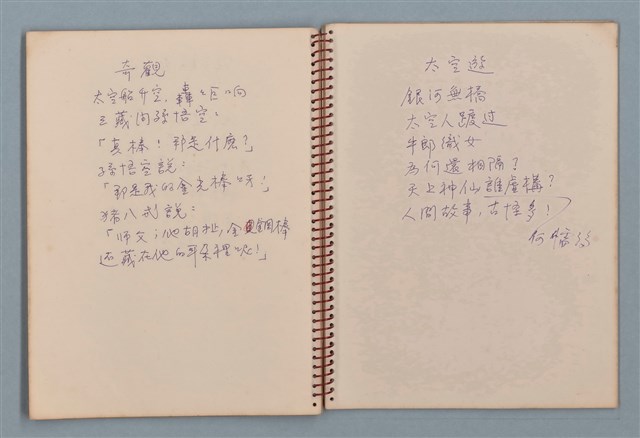 奇觀
太空船升空，轟轟巨响
三藏问孫悟空：
「真棒！那是什麽？」
孫悟空說：
「那是我的金光棒呀！」
猪八戒說：
「师父；他胡扯，金鋼棒
还藏在他的耳朵裡呢！」
太空遊
銀河無橋
太空人踱过
牛郎織女
為何還相隔？
天上神仙誰虛構？
人間故事，古怪多！
何